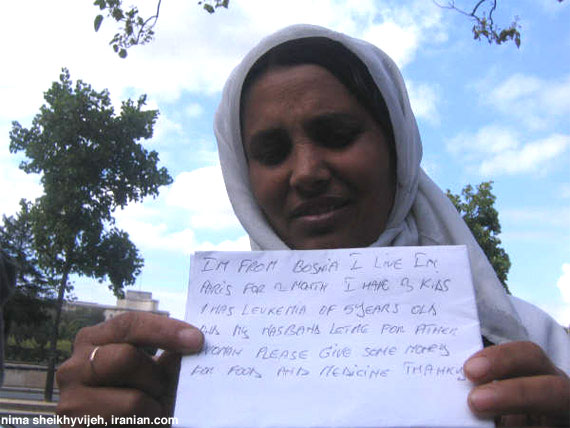 I'M FROM BOSNIA I LIVE IM
PARIS FOR 2 MONTH I HAVE 3 KIDS
1 HAS LEUKEMIA OF 5 YEARS OLD
MY HASBAND LETME FOR ATHER
WOMAN PLEASE GIVE SOME MONEY
FOR FOOD AND MEDICINE THANKY
nima sheikhyvijeh, iranian.com